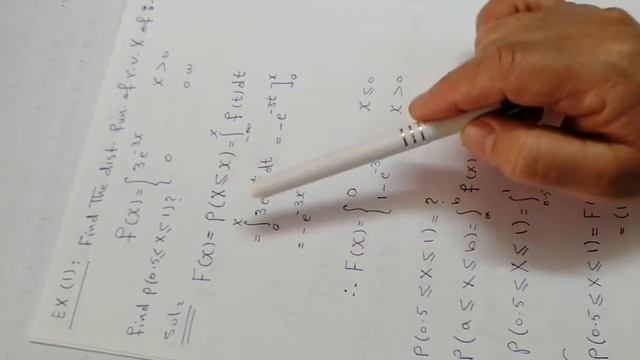 EX(1): Find The dist. fun. of r.v. X of
f(x) = { 3e^-3x x > 0
0 o.w
Find P(0.5 ≤ X ≤ 1)?
Sol:
F(x) = P(X ≤ x) = ∫_-∞^x f(t) dt
= ∫_0^x 3 dt = -e^-3t ]_0^x
= -e^-3x
∴ F(x) = { 0 x ≤ 0
1 - e^-3 x > 0
P(0.5 ≤ X ≤ 1) = ?
P(a ≤ X ≤ b) = ∫_a^b f(x)
P(0.5 ≤ X ≤ 1) = ∫_0.5^1
P(0.5 ≤ X ≤ 1) = F
= (1